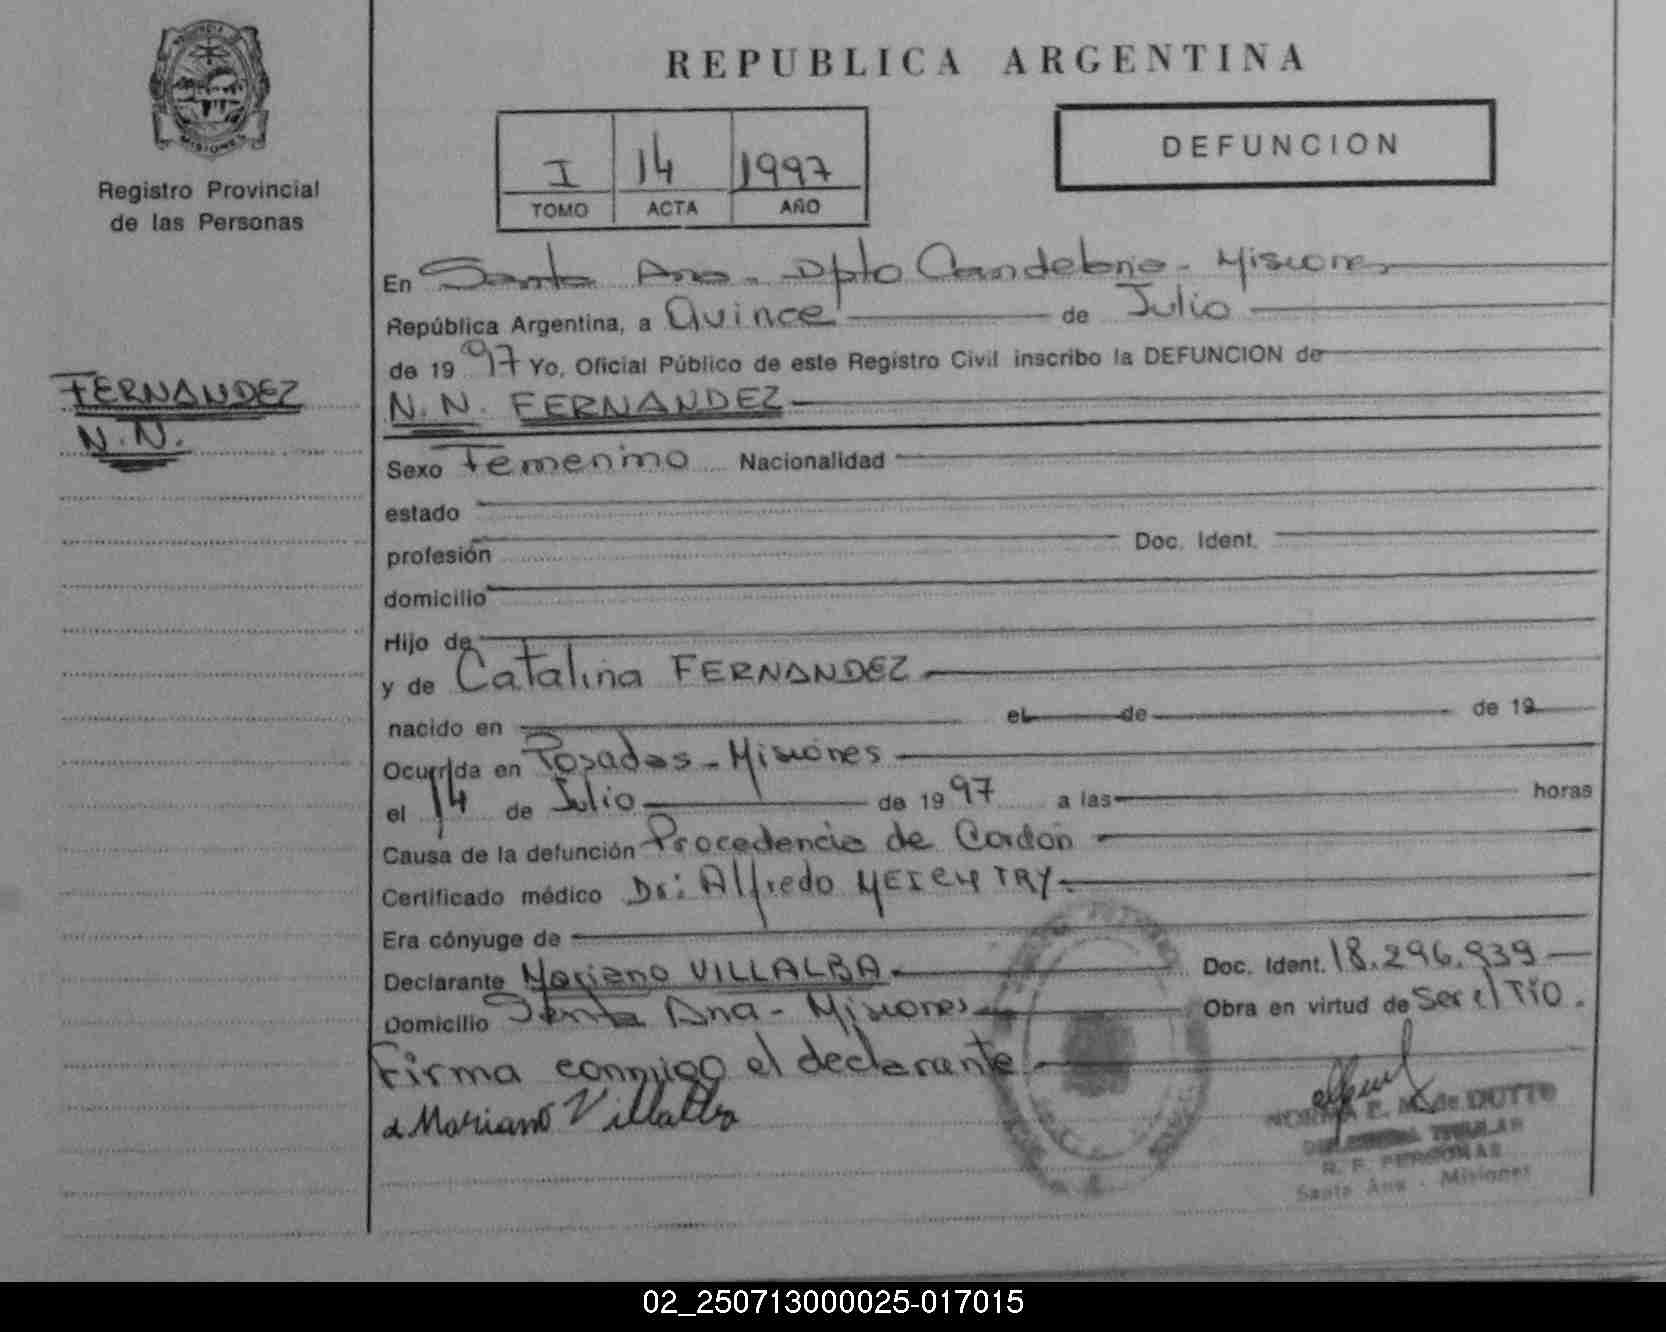 PROVINCIA DE
MISIONES
Registro Provincial
de las Personas
FERNANDEZ
N.N.
REPUBLICA ARGENTINA
I 14 1997
TOMO ACTA AÑO
DEFUNCION
En Santa Ana - Dpto Candelaria - Misiones
República Argentina, a Quince de Julio
de 19 97 Yo, Oficial Público de este Registro Civil inscribo la DEFUNCION de
N.N. FERNANDEZ
Sexo Femenino Nacionalidad
estado
profesión Doc. Ident.
domicilio
Hijo de
y de Catalina FERNANDEZ
nacido en el de de 19
Ocurrida en Posadas - Misiones
el 14 de Julio de 19 97 a las horas
Causa de la defunción Procedencia de Cordón
Certificado médico Dr: Alfredo
Era cónyuge de
Declarante Mariano VILLALBA Doc. Ident. 18.296.939
Domicilio Santa Ana - Misiones Obra en virtud de Ser el Tío.
Firma conmigo el declarante
Mariano Villalba
NORMA E. M. de DUTTO
TITULAR
R. P. PERSONAS
Santa Ana - Misiones
02_250713000025-017015